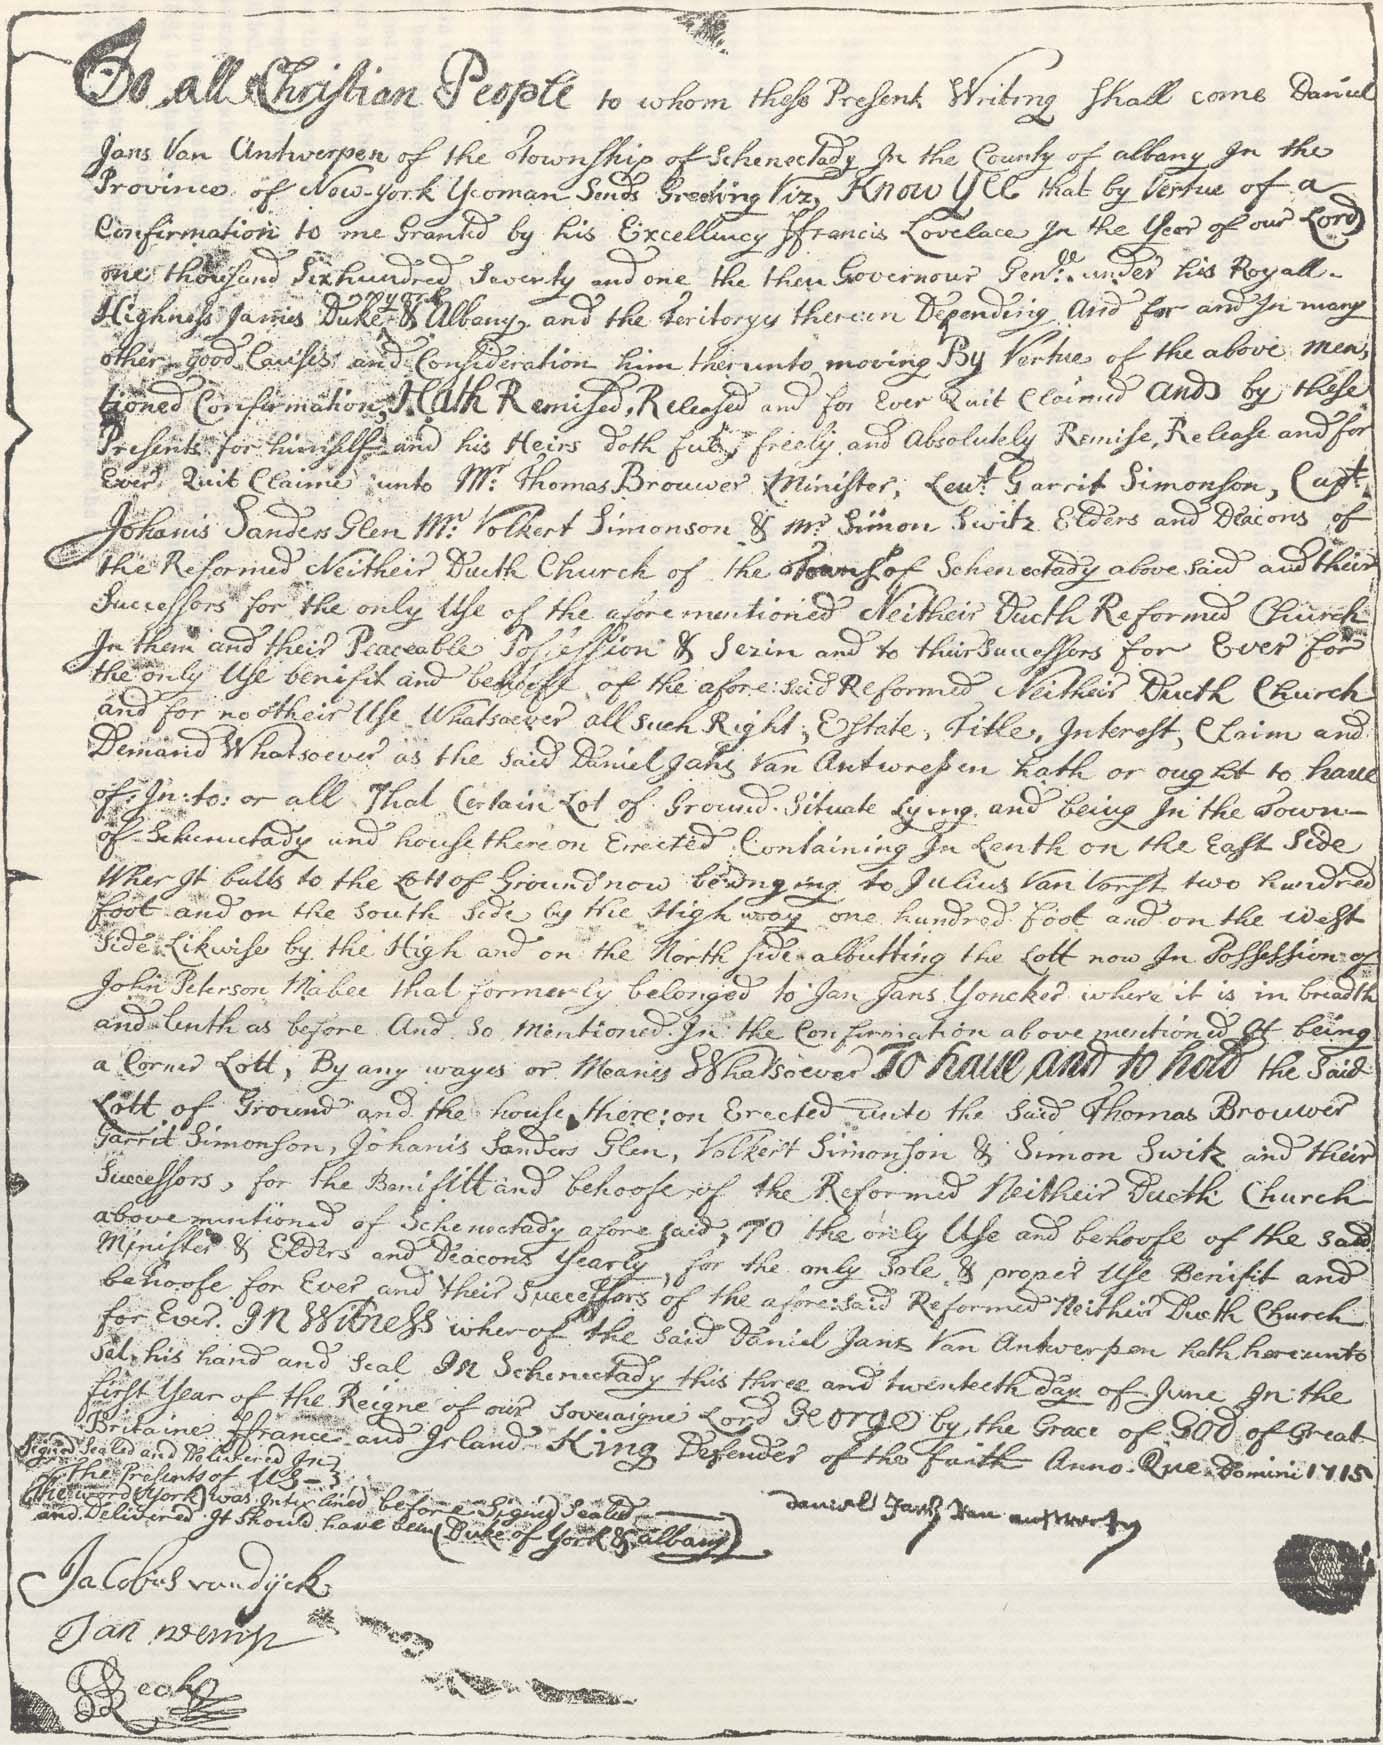 To all Christian People to whom these Present Writing shall come Daniel
Jans Van Antwerpen of the Township of Schenectady In the County of albany In the
Province of New-York Yeoman Sends Greeting Viz, Know Yee that by Vertue of a
Confirmation to me Granted by his Excellency ffrancis Lovelace In the Year of our Lord
one thousand Sixhundred Seventy and one the then Governour Gen.ll under his Royall
york
Highness James Duke & Albany, and the Teritorys thereon Depending And for and In many
other good Causes and Consideration him therunto moving By Vertue of the above men,
tioned Confirmation, Hath Remised, Released and for Ever Quit Claimed and by these
Presents for himself and his Heirs doth fully freely and Absolutely Remise, Release and for
Ever Quit Claime unto Mr. Thomas Brouwer Minister, Leut. Garrit Simonson, Capt.
Johanis Sanders Glen Mr. Volkert Simonson & Mr. Simon Switz Elders and Deacons of
the Reformed Neitheir Ducth Church of the Town of Schenectady above said and their
Successors for the only Use of the afore mentioned Neitheir Ducth Reformed Church
In them and their Peaceable Possession & Sezin and to their Successors for Ever for
the only Use benifit and behoofe of the afore:said Reformed Neitheir Ducth Church
and for no otheir Use Whatsoever all such Right, Estate, Title, Interest, Claim and
Demand Whatsoever as the said Daniel Jans Van Antwrepen hath or ought to have
of: In: to: or all That Certain Lot of Ground Situate Lying and being In the Town
of Schenectady and house thereon Erected Containing In Lenth on the East Side
Wher It butts to the Lott of Ground now belonging to Julius Van Vorst two hundred
foot and on the south side by the High way one hundred foot and on the west
side Likwise by the High and on the North side albutting the Lott now In Possession of
John Peterson Mabee that formerly belonged to Jan Jans Yoncker where it is in breadth
and lenth as before And So mentioned In the Confirmation above mentioned It being
a Corner Lott, By any wayes or Meanis Whatsoever To have and to hold the Said
Lott of Ground and the house there:on Erected unto the said Thomas Brouwer
Garrit Simonson, Johanis Sanders Glen, Volkert Simonson & Simon Switz and their
Successors, for the Benifitt and behoofe of the Reformed Neitheir Ducth Church
above mentioned of Schenectady afore said, TO the only Use and behoofe of the said
Minister & Elders and Deacons Yearly, for the only Sole & proper Use Benifit and
behoofe for Ever and their Successors of the afore:said Reformed Neitheir Ducth Church
for Ever. IN Witness wherof the said Daniel Jans Van Antwerpen hath hereunto
sat his hand and Seal In Schenectady this three and twenteeth day of June In the
first Year of the Reigne of our Soveraigne Lord George by the Grace of God of Great
Britaine ffrance and Irland King Defender of the faith Anno. Que. Domini 1715
Signed Sealed and Delivered In
the Presents of US
(the word York) was Interlined before Signed Sealed
and Delivered It should have been (Duke of York & albany)
Daniel Jans Van antwerpen
Jacobus van dyck
Jan wemp